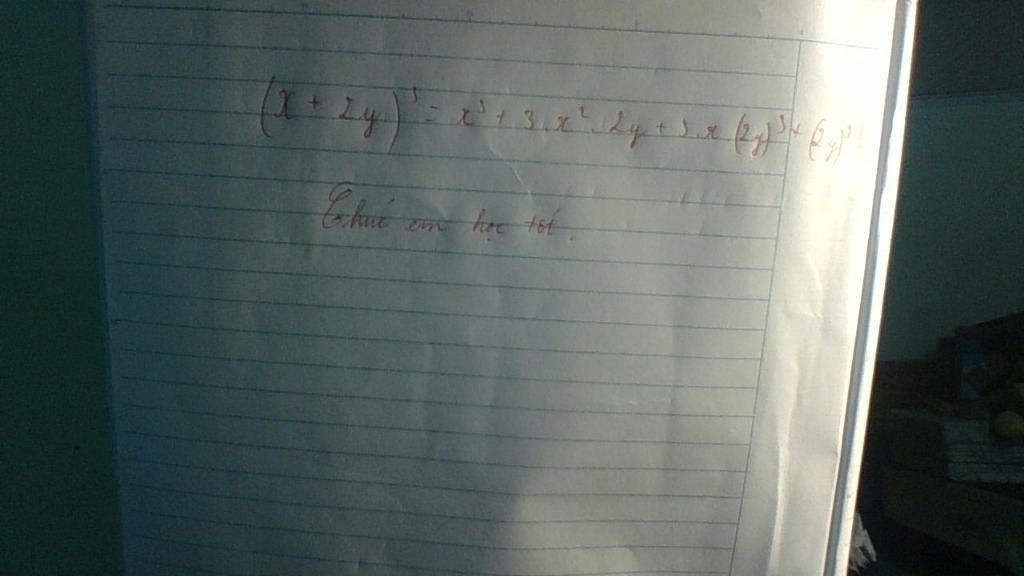 (x + 2y)³ = x³ + 3.x².2y + 3.x.(2y)³ + (2y)³
Chúc em học tốt.